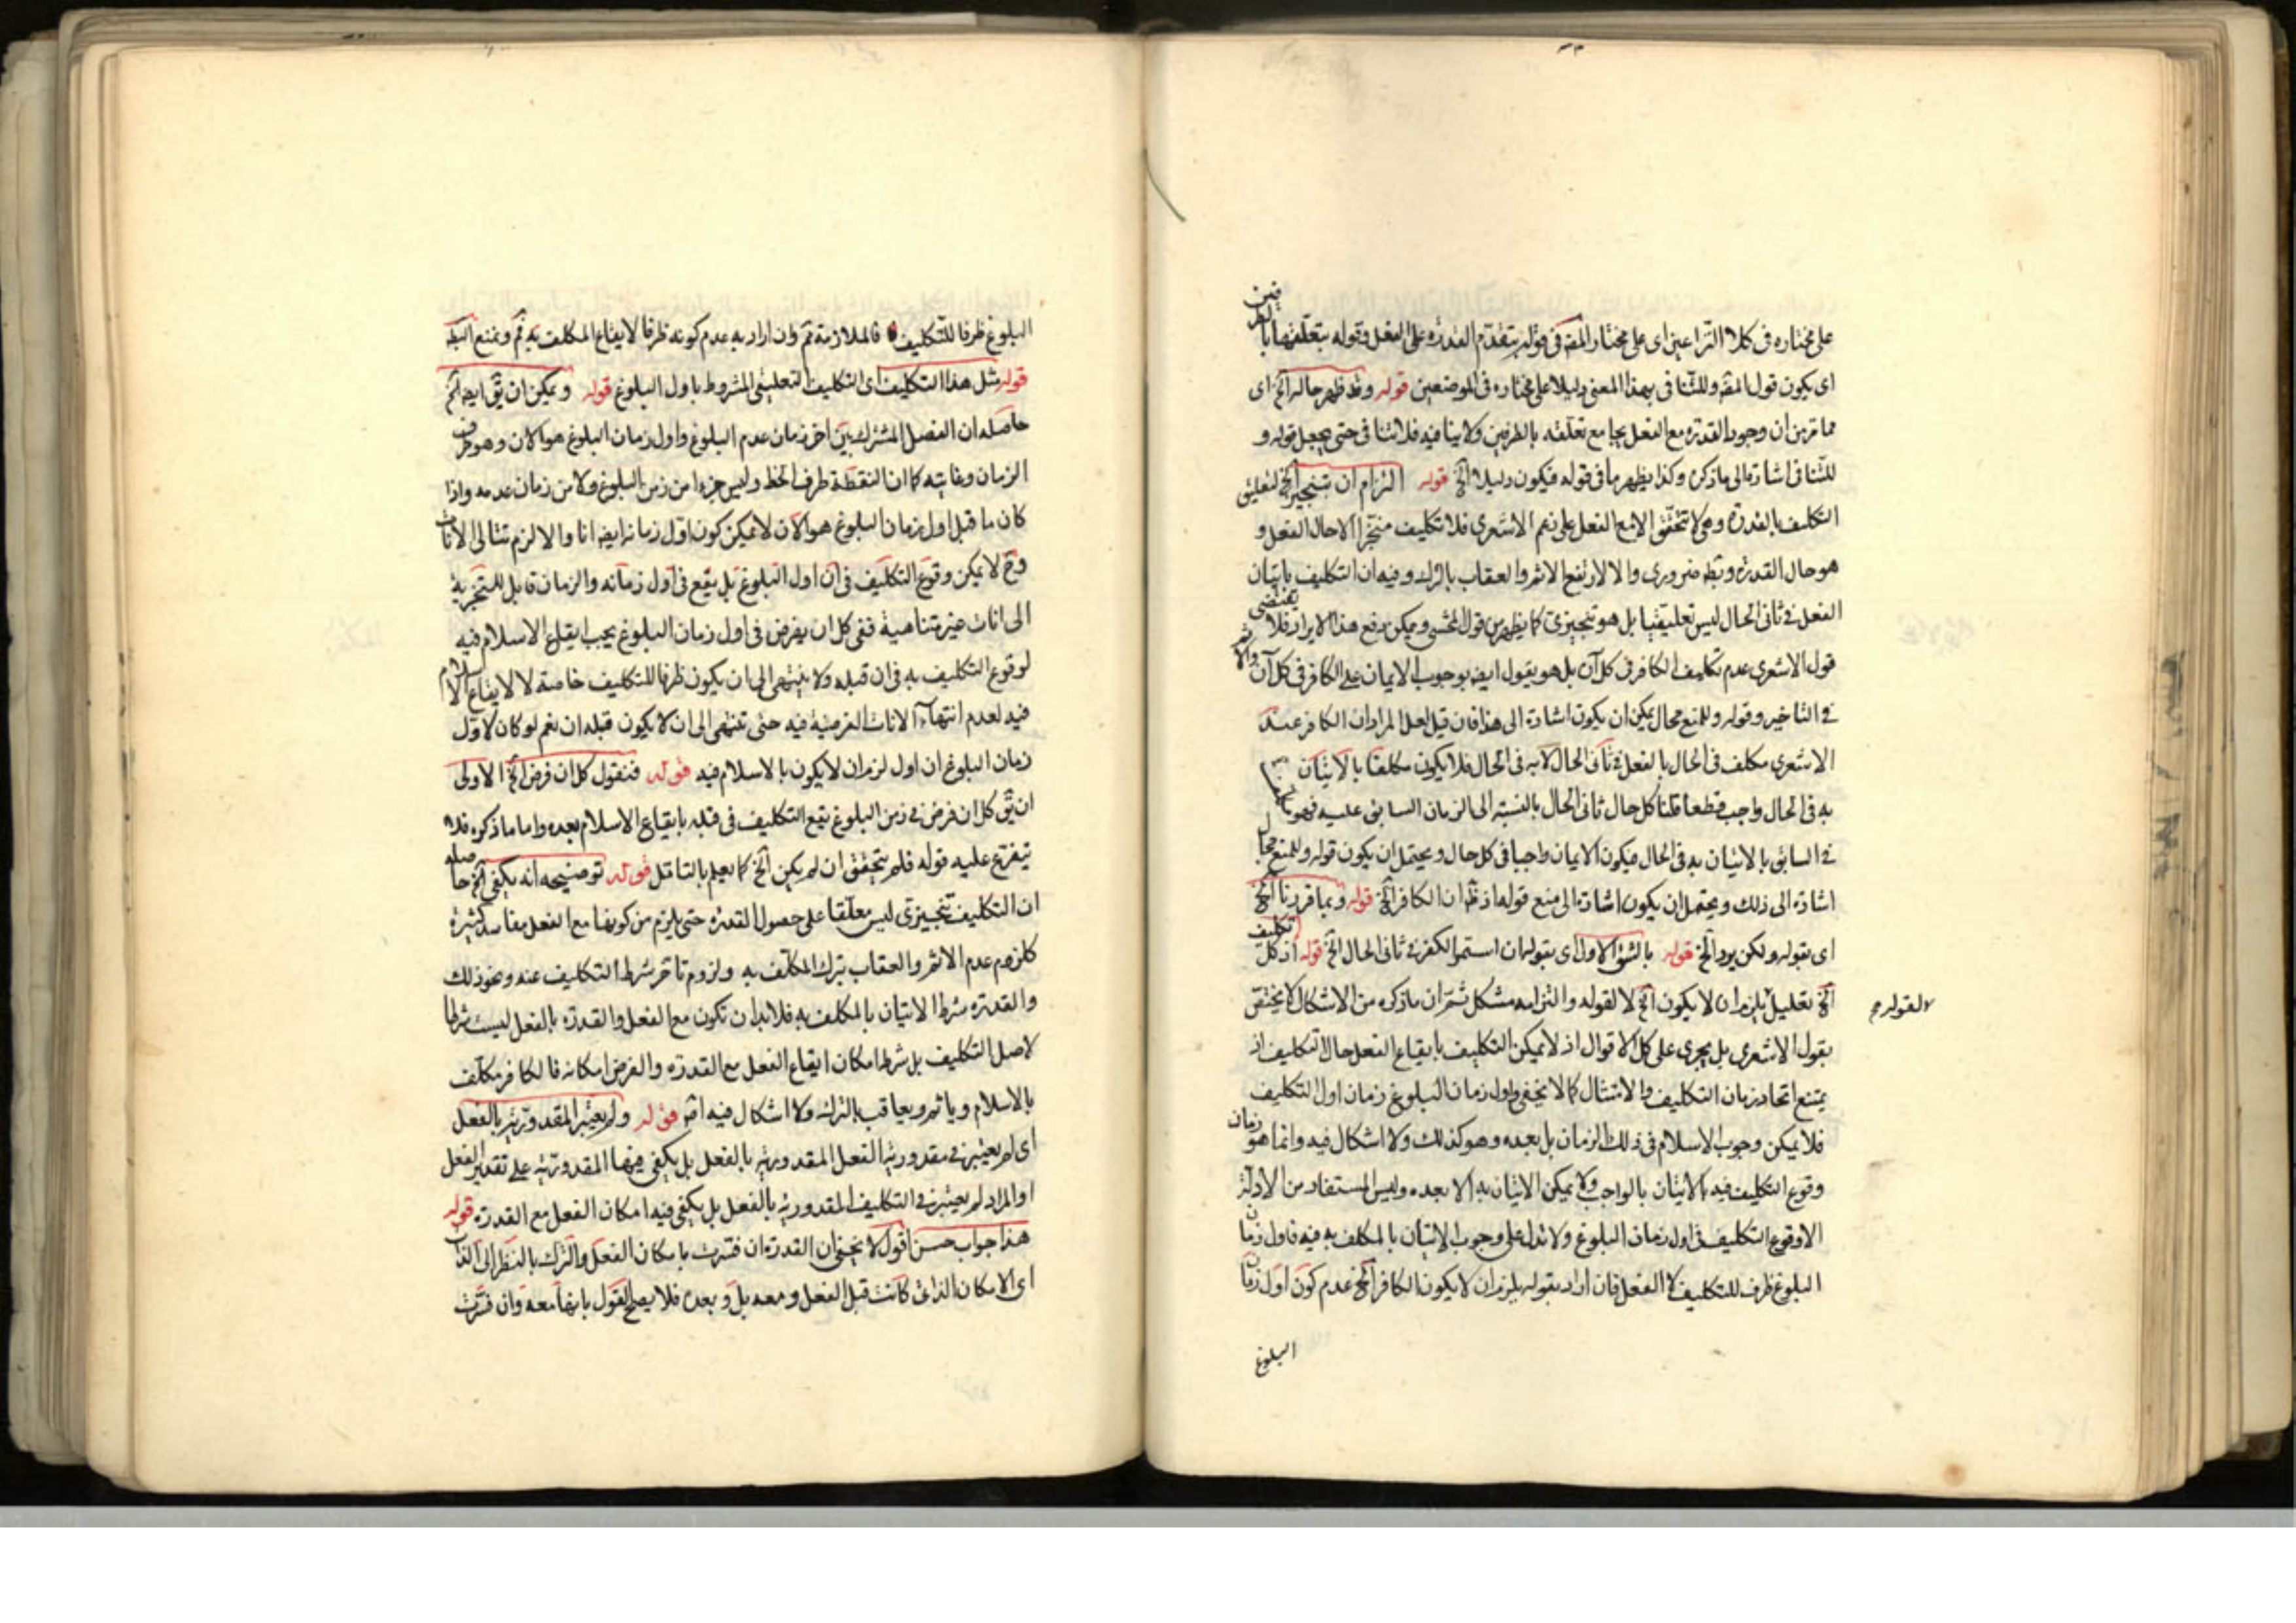 على مختاره فى كلا النزاعين اى على مختار المصّ فى قوله يتقدم القدرة على الفعل وقوله بتعلقها بالطرفين
اى يكون قول المصّ وللتنافى بهذا المعنى دليلا على مختاره فى الموضعين قوله وقد ظهر حاله آلخ اى
مما تر من ان وجود القدرة مع الفعل يجامع تعلقه بالطرفين ولا ينافيه فلا تنافى حتى يجعل قوله و
للتنافى اشارة الى ما ذكره وكذا يظهر ما فى قوله فيكون دليلا آلخ قوله التزام ان تنجيز آلخ لتعليق
التكليف بالقدرة وهى لا تتحقق الا مع الفعل على زعم الاشعرى فلا تكليف منجزا الا حال الفعل و
هو حال القدرة وبطه ضرورى والا لارتفع الاثم والعقاب بالترك وفيه ان التكليف باتيان
الفعل فى ثانى الحال ليس تعليقيا بل هو تنجيزى كما يظهر من قول المحشى ويمكن دفع هذا الايراد فلا يقتضى
قول الاشعرى عدم تكليف الكافر فى كل آن بل هو يقول ايضه بوجوب الايمان على الكافر فى كل آن
فى التاخير وقوله وللمنع مجال يمكن ان يكون اشارة الى هذا فان قيل لعل المراد ان الكافر عند
الاشعرى مكلف فى الحال بالفعل فى ثانى الحال لا به فى الحال فلا يكون مكلفا بالاتيان
به فى الحال واجب قطعا قلنا كل حال ثانى الحال بالنسبة الى الزمان السابق عليه فهو
فى السابق بالاتيان به فى الحال فيكون الايمان واجبا فى كل حال ويحتمل ان يكون قوله وللمنع مجال
اشارة الى ذلك ويحتمل ان يكون اشارة الى منع قوله اذ ظهر ان الكافر آلخ قوله وبما قررنا آلخ
اى بقوله ولكن يرد آلخ قوله بالشق الاول اى بقوله ان استمر الكفر فى ثانى الحال آلخ قوله اذ كل التكليف
آلخ تعليل يلزم ان لا يكون آلخ لا لقوله والتزامه مشكل ثم ان ما ذكره من الاشكال لا يختص
لا لقوله م
بقول الاشعرى بل يجرى على كل الاقوال اذ لا يمكن التكليف بايقاع الفعل حال التكليف اذ
يمتنع اتحاد زمان التكليف والامتثال كما لا يخفى واول زمان البلوغ زمان اول التكليف
فلا يمكن وجوب الاسلام فى ذلك الزمان بل بعده وهو كذلك ولا اشكال فيه وانما هو زمان
وقوع التكليف فيه بالاتيان بالواجب ولا يمكن الاتيان به الا بعده وليس المستفاد من الادلة
الا وقوع التكليف فى اول زمان البلوغ ولا تدل على وجوب الاتيان بالمكلف به فيه فاول زمان
البلوغ ظرف للتكليف لا الفعل فان اراد بقوله يلزم ان لا يكون الكافر آلخ عدم كون اول زمان
البلوغ
البلوغ ظرفا للتكليف فالملازمة تم وان اراد به عدم كونه ظرفا لايقاع المكلف به تم ونمنع البط
قوله مثل هذا التكليف اى التكليف التعليقى المشروط باول البلوغ قوله ويمكن ان يق ايضه آلخ
حاصله ان الفصل المشترك بين اخر زمان عدم البلوغ واول زمان البلوغ هو الان وهو طرف
الزمان وغايته كما ان النقطة طرف الخط وليس جزءا من زمن البلوغ ولا من زمان عدمه واذا
كان ما قبل اول زمان البلوغ هو الآن لا يمكن كون اول زمانه ايضه انا والا لزم تتالى الانات
وح لا يمكن وقوع التكليف فى آن اول البلوغ بل يقع فى اول زمانه والزمان قابل للتجزية
الى انات غير متناهية ففى كل ان يفرض فى اول زمان البلوغ يجب ايقاع الاسلام فيه
لوقوع التكليف به فى ان قبله ولا ينتهى الى ان يكون ظرفا للتكليف خاصة لا لايقاع الاسلام
فيه لعدم انتهاء الانات الفرضية فيه حتى تنتهى الى ان لا يكون قبله ان نعم لو كان لاول
زمان البلوغ ان اول لزم ان لا يكون بالاسلام فيه قوله فنقول كل ان فرض آلخ الاولى
ان يق كل ان فرض فى زمن البلوغ يقع التكليف فى قبله بايقاع الاسلام بعده واما ما ذكره فلا
يتفرع عليه قوله فلم يتحقق ان لم يكن آلخ كما يعلم بالتامل قوله توضيحه انه يكفى آلخ حاصله
ان التكليف تنجيزى ليس معلقا على حصول القدرة حتى يلزم من كونها مع الفعل مفاسد كثيرة
كلزوم عدم الاثم والعقاب بترك المكلف به ولزوم تاخر شرط التكليف عنه ونحو ذلك
والقدرة شرط الاتيان بالمكلف به فلا بد ان تكون مع الفعل والقدرة بالفعل ليست شرطا
لاصل التكليف بل شرط امكان ايقاع الفعل مع القدرة والفرض امكانه فالكافر مكلف
بالاسلام وياثم ويعاقب بالترك ولا اشكال فيه اصّ قوله ولم يعتبر المقدورية بالفعل
اى لم يعتبر فى مقدورية الفعل المقدورية بالفعل بل يكفى فيها المقدورية على تقدير الفعل
او المراد لم يعتبر فى التكليف المقدورية بالفعل بل يكفى فيه امكان الفعل مع القدرة قوله
هذا جواب حسن اقول لا يخفى ان القدرة ان فسرت بامكان الفعل والترك بالنظر الى الذات
اى الامكان الذاتى كانت قبل الفعل ومعه بل وبعده فلا يصلح القول بانها معه وان فسرت